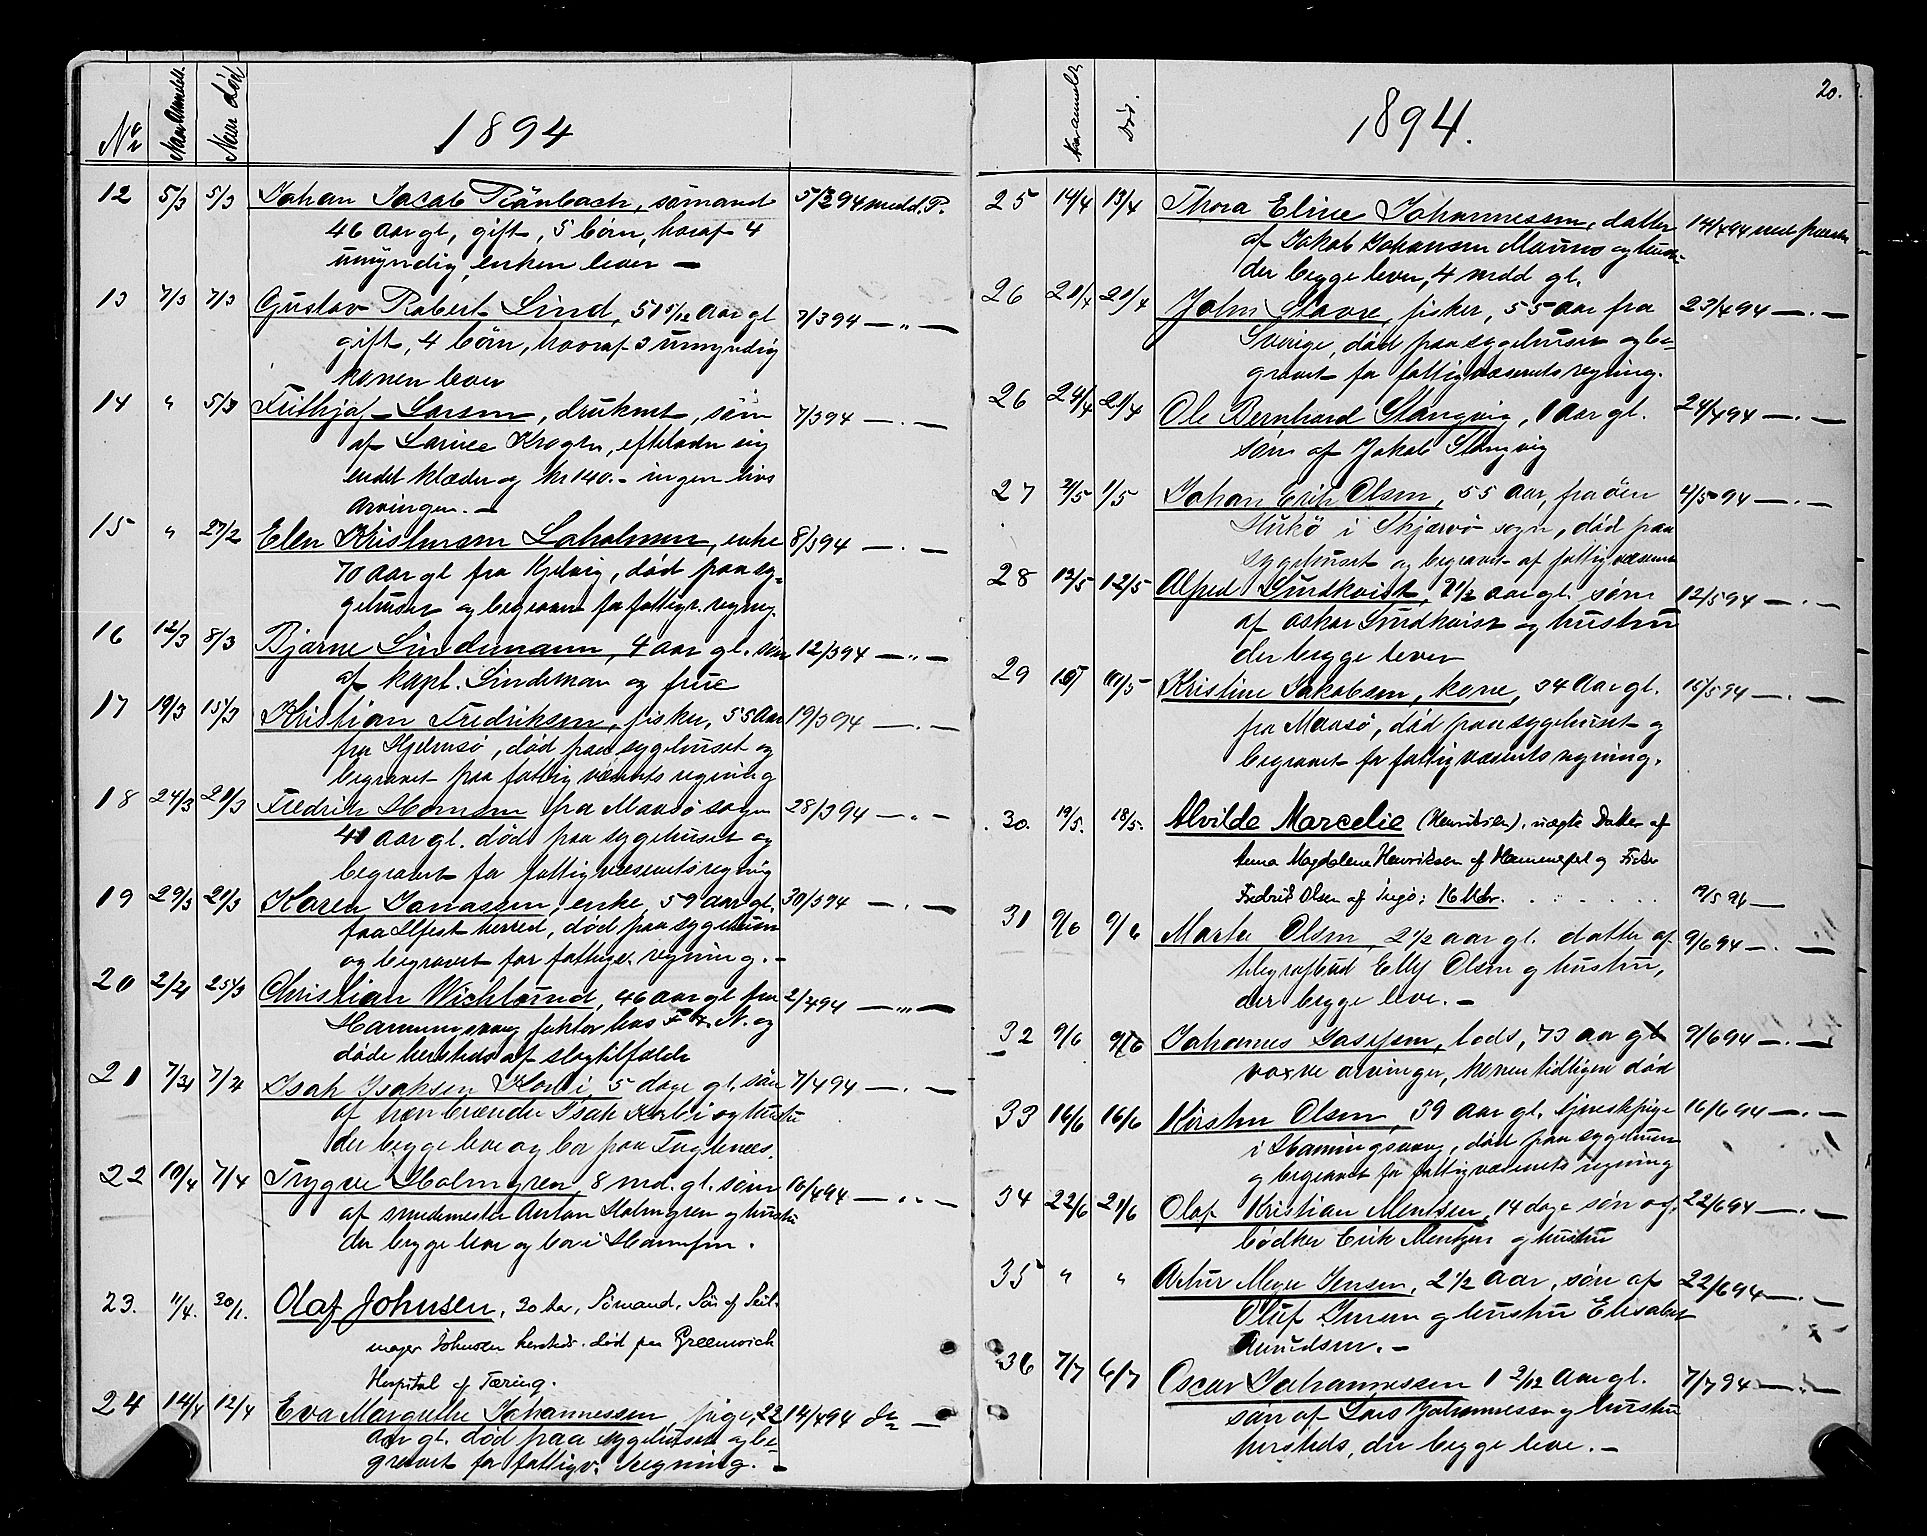 No Naar Anmeldt. Naar død 1894
12 5/3 5/3 Johan Jacob Rönbach, sömand 5/3 94 medd. P.
46 aar gl, gift, 5 börn, hvoraf 4
umyndig, enken lever —
13 7/3 7/3 Gustav Robert Lind, 51 5/12 aar gl 7/3 94 — „ —
gift, 4 börn, hvoraf 3 umyndig
konen lever
14 " 5/3 Frithjof Larsen, druknet, sön 7/3 94 — . —
af Larine Krogen, efterlader sig
endel klæder og kr 140.- ingen livs
arvinger. —
15 " 27/2 Elen Kristensen Laholmen, enke 8/3 94 — . —
70 aar gl fra Kjelvig, død paa sy-
gehuset og begravet for fattigv. regning.
16 12/3 8/3 Bjarne Lindemann, 4 aar gl. sön 12/3 94 — „ —
af kapt. Lindeman og frue
17 19/3 15/3 Kristian Fredriksen, fisker, 55 aar 19/3 94 — . —
fra Hjelmsö, død paa sygehuset og
begravet paa fattigvæsenets regning
18 24/3 21/3 Fredrik Hansen fra Maasö sogn 28/3 94 — . —
41 aar gl. død paa sygehuset og
begravet for fattigvæsenets regning
19 29/3 21/3 Karen Jonassen, enke, 59 aar gl. 30/3 94 — . —
fra herred, død paa sygehuset
og begravet for fattigv. regning. -
20 2/4 25/3 Christian Wichlund, 46 aar gl fra 2/4 94 — „ —
Honningsvaag, faktor hos F. N. og
døde hersteds af slagtilfælde
21 7/4 7/4 Isak Isaksen 5 dage gl. sön 7/4 94 — . —
af Isak og hustru
der begge leve og bor paa Fuglenæs.
22 10/4 7/4 Trygve Holmgren 8 md. gl. sönn 10/4 94 — . . —
af smedemester Anton Holmgren og hustru
der begge leve og bor i Hammerfest.
23. 11/4. 30/1. Olaf Johnsen, 30 Aar, Sömand, Sön af Seil-
mager Johnsen hersteds. död paa Greenwich
Hospital af Tæring.
24 14/4 12/4 Eva Margrethe Johannessen, pige, 22 14/4 94 do —
aar gl. død paa sygehuset og be-
gravet for fattigv. regning. —
20.
Naar anmeldt Död. 1894.
25 14/4 13/4 Thora Eline Johannessen, datter 14/4 94 med. præsten
af Jakob Johansen og hustru
der begge lever, 4 mdd gl.
26 21/4 21/4 John fisker, 55 aar fra 23/4 94 — . —
Sverige, død paa sygehuset og be-
gravet for fattigvæsenets regning.
26 24/4 21/4 Ole Bernhard Stangvig, 1 aar gl. 24/4 94 — . —
sön af Jakob Stangvig
27 2/5 1/5 Johan Erik Olsen, 55 aar, fra öen 4/5 94 — . —
i Skjærvö sogn, død paa
sygehuset og begravet af fattigvæsenet
28 12/5 12/5 Alfred Lundkvist, 2 1/2 aar gl. sönn 12/5 94 — . —
af Oskar Lundkvist og hustru
der begge lever
29 Kristine Jakobsen, kone, 34 aar gl. 15/5 94 — . —
fra Maasö, død paa sygehuset og
begravet for fattigvæsenets regning.
30. 19/5. 18/5. Alvilde Marcelie (Henriksen). uægte Datter af
Anna Magdalene Henriksen af Hammerfest og Fisker
Fredrik Olsen af Ingö: 16 Mdr. . . . . . . 19/5 94 —
31 9/6 9/6 Marta Olsen, 2 1/2 aar gl. datter af 9/6 94 — . —
telegrafbud Olsen og hustru,
der begge leve. —
32 9/6 9/6 Johannes Josefsen, lods, 73 aar gl 9/6 94 — . —
voxne arvinger, konen tidligere død
33 16/6 16/6 Kirsten Olsen, 39 aar gl. tjenestepige 16/6 94 — . —
i Honningsvaag, død paa sygehuset
og begravet for fattigvæsenets regning
34 22/6 21/6 Olaf Kristian Mentsen, 14 dage sön af 22/6 94 — . —
bødker Erik Mentzen og hustru
35 " " Artur Jensen, 2 1/2 aar, sön af 22/6 94 — . —
Oluf Jensen og hustru Elisabet
Amundsen. —
36 7/7 6/7 Oscar Johannessen 1 2/12 aar gl. 7/7 94 — . —
sön af Lars Johannessen og hustru
hersteds, der begge leve. —